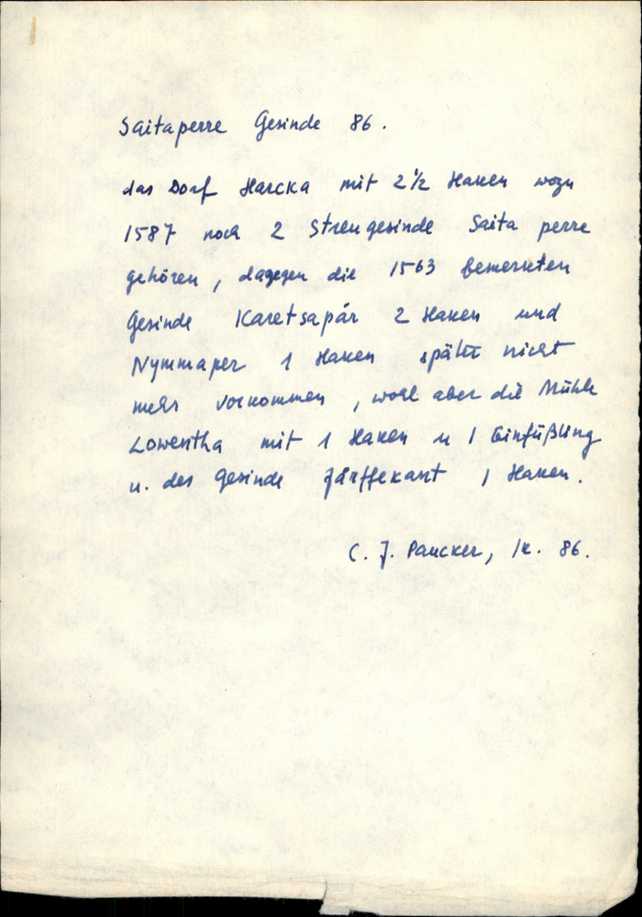 Saitaperre Gesinde 86.
das Dorf Harcka mit 2 1/2 Haken wozu
1587 noch 2 Streugesinde Saita perre
gehören, dagegen die 1563 bemerkten
Gesinde Karetsapär 2 Haken und
Nymmaper 1 Haken später nicht
mehr vorkommen, wohl aber die Mühle
Lowentha mit 1 Haken u 1 Einfüßling
u. das Gesinde 1 Haken.
C. J. Paucker, 86.